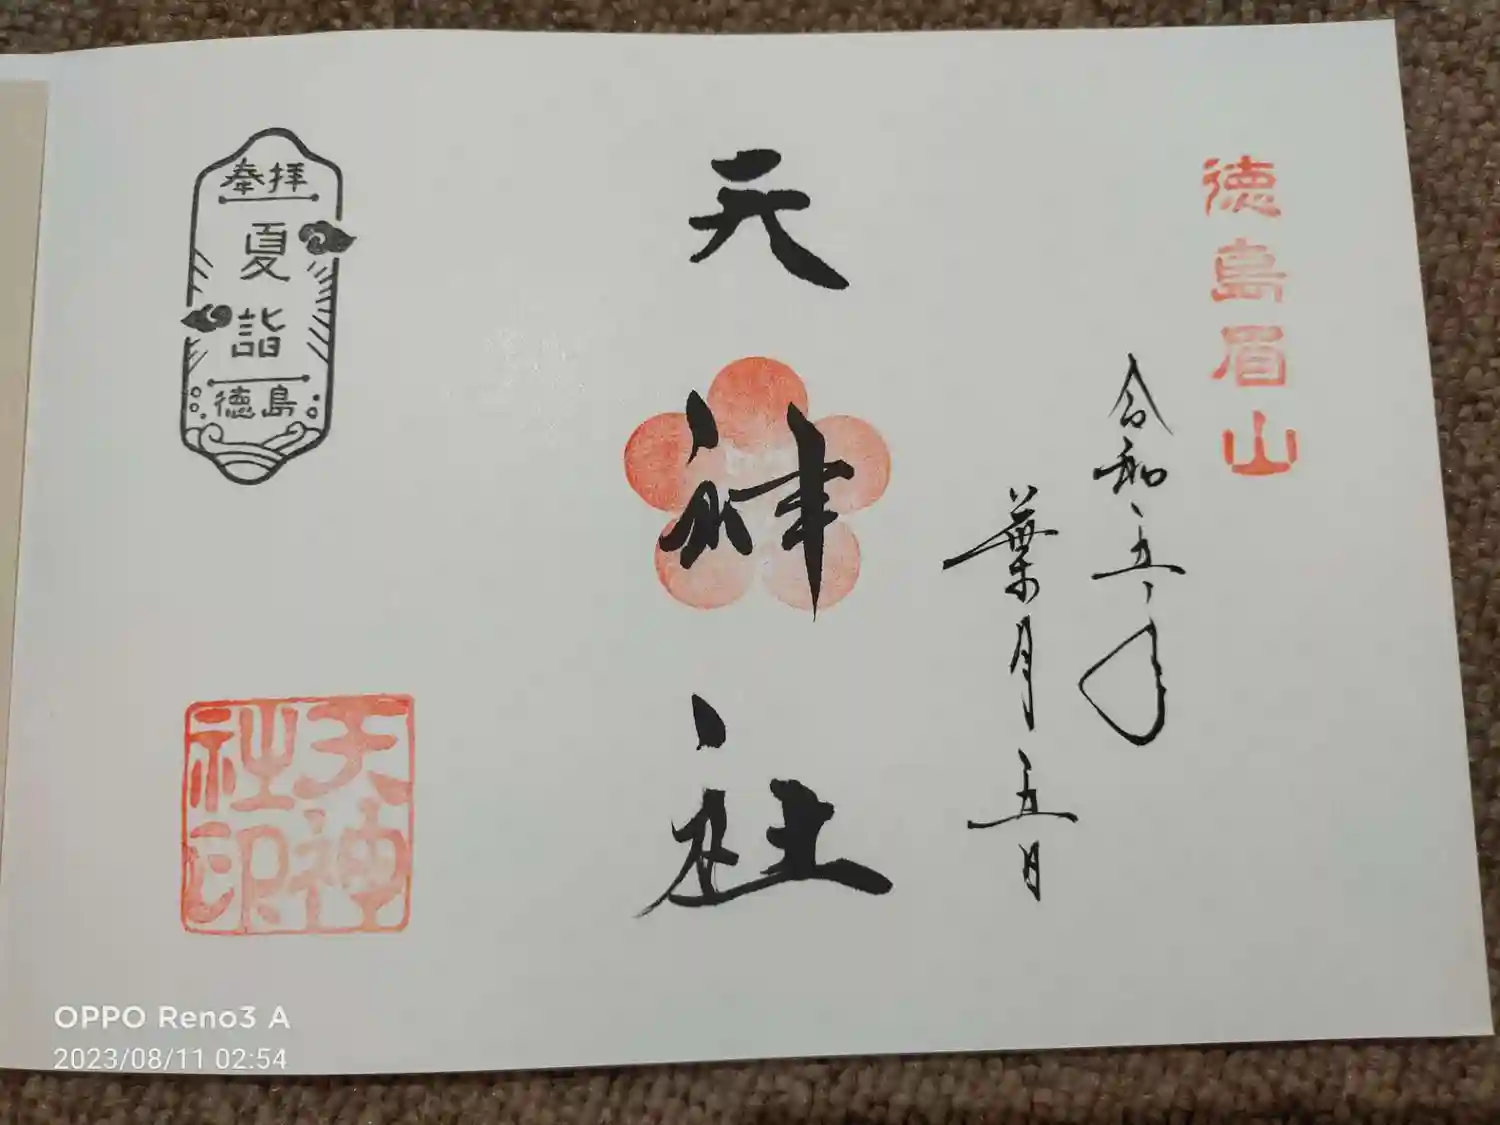 徳島眉山
令和五年
葉月五日
天神社
奉拝
夏詣
徳島
天神
社印
OPPO Reno3 A
2023/08/11 02:54